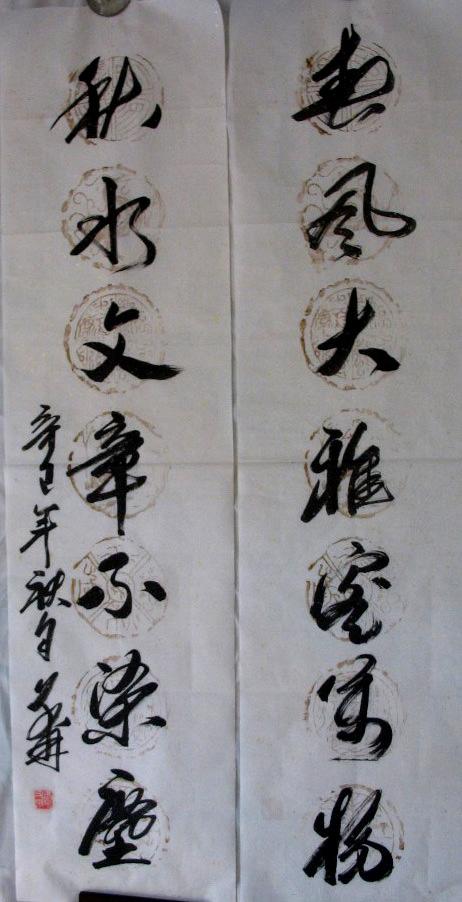 春风大雅容万物
秋水文章不染尘
辛巳年秋月